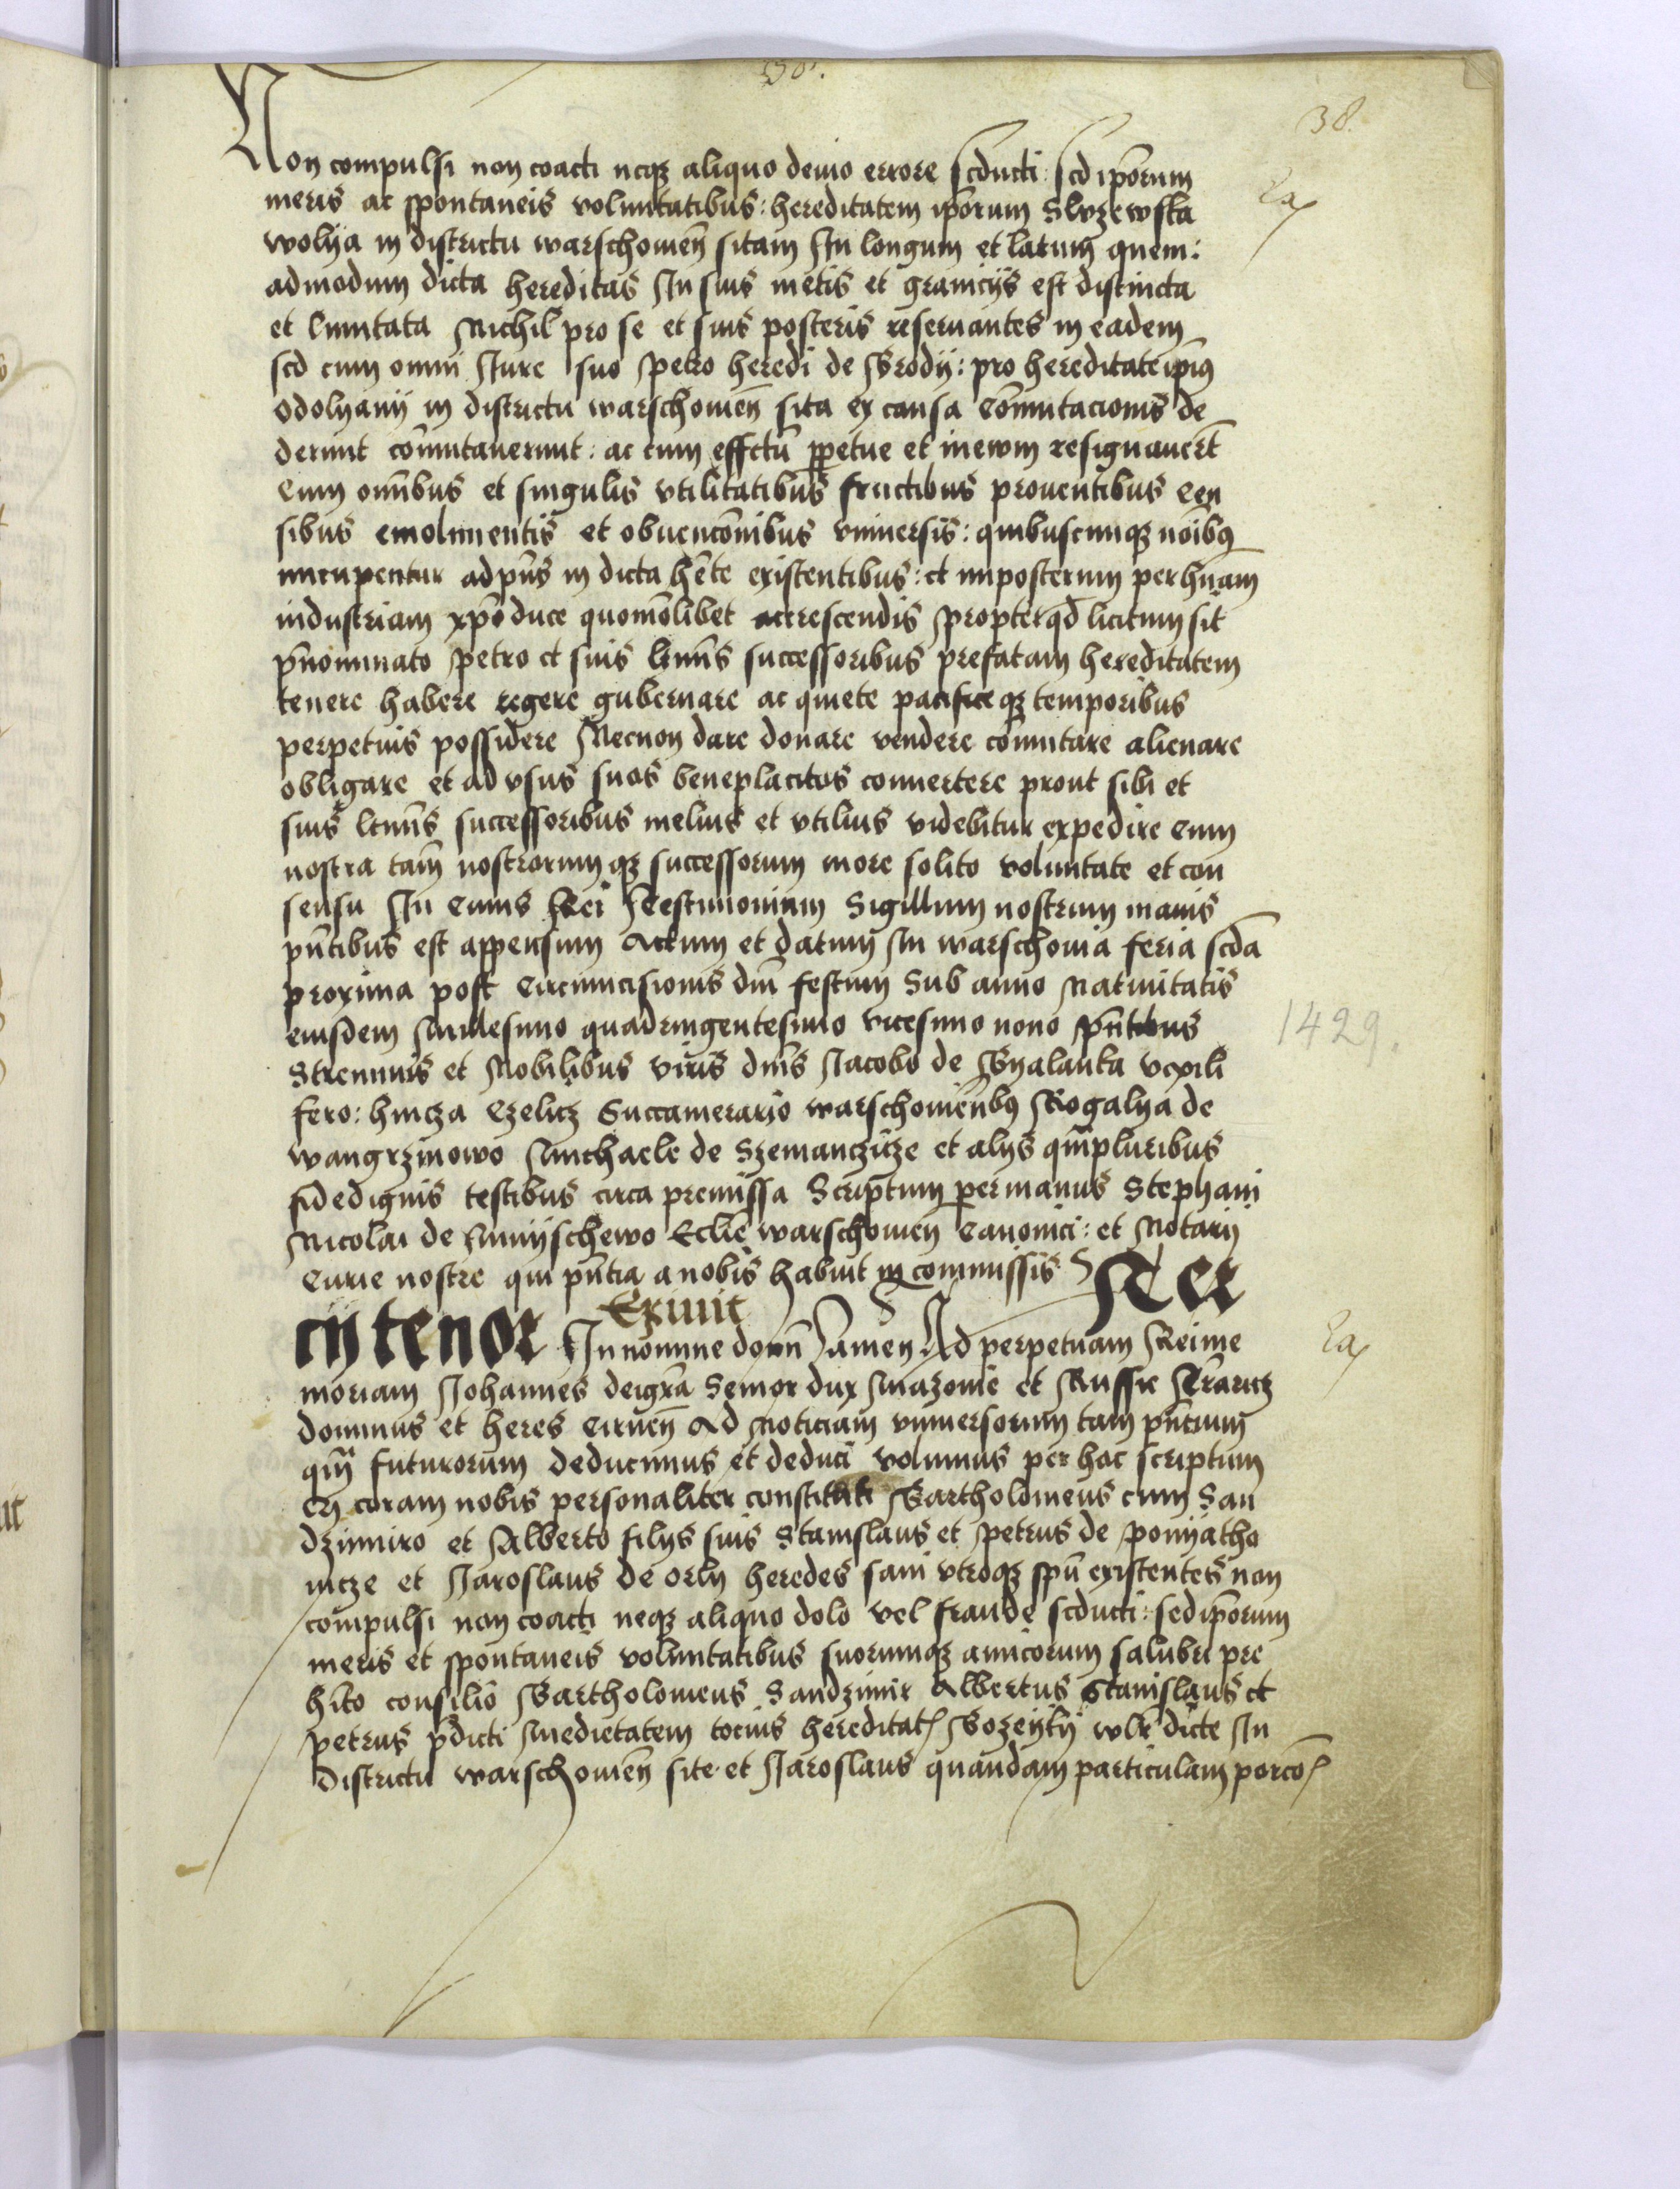 38.
Non compulsi non coacti neqz aliquo deuio errore seducti: sed ip̄orum
meris ac spontaneis voluntatibus: hereditatem ip̄orum Slvzewska
wolya in districtu warschouien̄ sitam In longum et latum quem:
admodum dicta hereditas In suis metis et granicijs est distincta
et limitata Nichil pro se et suis posteris reseruantes in eadem
sed cum omni Jure suo Petro heredi de Brody: pro hereditate ip̄ius
Odolyany in districtu warschouien̄ sita ex causa com̄utacionis de
derunt com̄utauerunt: ac cum effctū ppetue et in ewm resignauer̄t
Cum om̄ibus et singulis vtilitatibus fructibus prouentibus Cen
sibus emolimentis et obuencōnibus vniuersis: quibuscunqz noībus
nuncupentur ad pn̄s in dicta hēte existentibus: et imposterum per hūam
industriam xpō duce quomōlibet accrescendis Propter qd̄ licitum sit
pn̄ominato Petro et suis ltimīs successoribus prefatam hereditatem
tenere habere regere gubernare ac quiete pacifice qz temporibus
perpetuis possidere Necnon dare donare vendere comutare alienare
obligare et ad vsus suos beneplacitos conuertere prout sibi et
suis ltimīs successoribus melius et vtilius videbitur expedire Cum
nostra tam̄ nostrorumqz successorum more solito voluntate et con
sensu In Cuius Rei Testimonium Sigillum nostrum maius
pn̄tibus est appensum Actum et datum In warschouia feria scdā
proxima post Circumcisionis dnī festum Sub anno Natiuitatis
eiusdem Millesimo quadringentesimo vicesimo nono Pn̄tibus
1429.
Strennuis et Nobilibus viris dnīs Jacobo de Byalauka vexili
fero: hincza Czelicz Succamerario warschouien̄bus Rogalya de
wangrzinowo Michaele de Szemanczicze et alys qm̄pluribus
fidedignis testibus circa premissa Scriptum per manus Stephani
Nicolai de Mnijschewo Ecclie warschouien̄ Canonici: et Notarij
Curie nostre qui pn̄tia a nobis habuit in commissis Ter
cij tenor Exiuit In nomine domī amen Ad perpetuam Rei me
moriam Johannes dei grā Senior dux Mazouie et Russie
dominus et heres Ciruen̄ Ad Noticiam vniuersorum tam pn̄tium
qm̄ futurorum deducimus et deduci volumus per hoc scriptum
coram nobis personaliter constituti Bartholomeus cum San
dzimiro et Alberto filys suis Stanislaus et Petrus de Ponyatho
wicze et Jaroslaus de Orly heredes sani vtroqz spū existentes non
compulsi non coacti neqz aliquo dolo vel fraude seducti: sed ip̄orum
meris et spontaneis voluntatibus suorumqz amicorum salubri pre
hīto consilio Bartholomeus Sandzimir Albertus Stanislaus et
Petrus p̄dicti Medietatem tocius hereditat Bozeyly wlr̄ dicte In
districtu warschouien̄ site et Jaroslaus quandam particulam